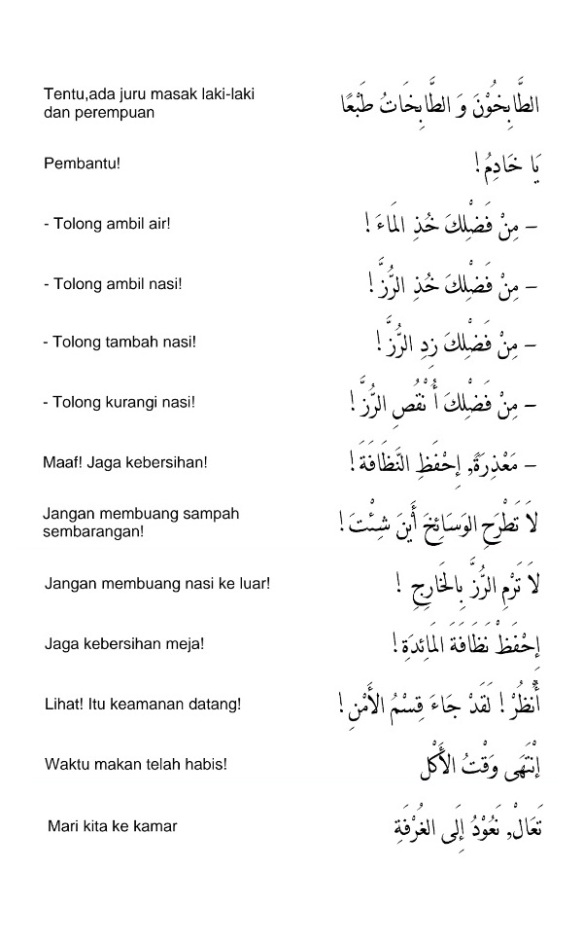 Tentu,ada juru masak laki-laki
dan perempuan
الطَّابِخُوْنَ وَ الطَّابِخَاتُ طَبْعًا
Pembantu!
يَا خَادِمُ!
- Tolong ambil air!
– مِنْ فَضْلِكَ خُذِ المَاءَ!
- Tolong ambil nasi!
– مِنْ فَضْلِكَ خُذِ الرُّزَّ!
- Tolong tambah nasi!
– مِنْ فَضْلِكَ زِدِ الرُّزَّ!
- Tolong kurangi nasi!
– مِنْ فَضْلِكَ أُنْقُصِ الرُّزَّ!
Maaf! Jaga kebersihan!
– مَعْذِرَةً, إِحْفَظِ النَّظَافَةَ!
Jangan membuang sampah
sembarangan!
لاَ تَطْرَحِ الوَسَائِخَ أَيْنَ شِئْتَ!
Jangan membuang nasi ke luar!
لاَ تَرْمِ الرُّزَّ بِالخَارِجِ !
Jaga kebersihan meja!
إِحْفَظْ نَظَافَةَ المَائِدَةِ!
Lihat! Itu keamanan datang!
أُنْظُرْ! لَقَدْ جَاءَ قِسْمُ الأَمْنِ!
Waktu makan telah habis!
إِنْتَهَى وَقْتُ الأَكْل
Mari kita ke kamar
تَعَالْ, نَعُوْدُ إِلَى الغُرْفَةِ